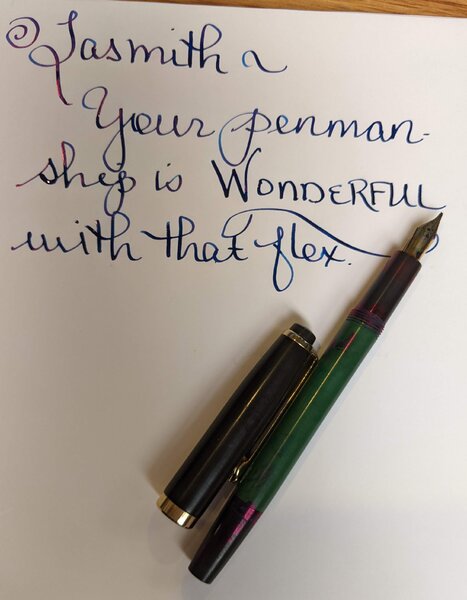 @Jasmith ~
Your penman-
ship is WONDERFUL
with that flex.